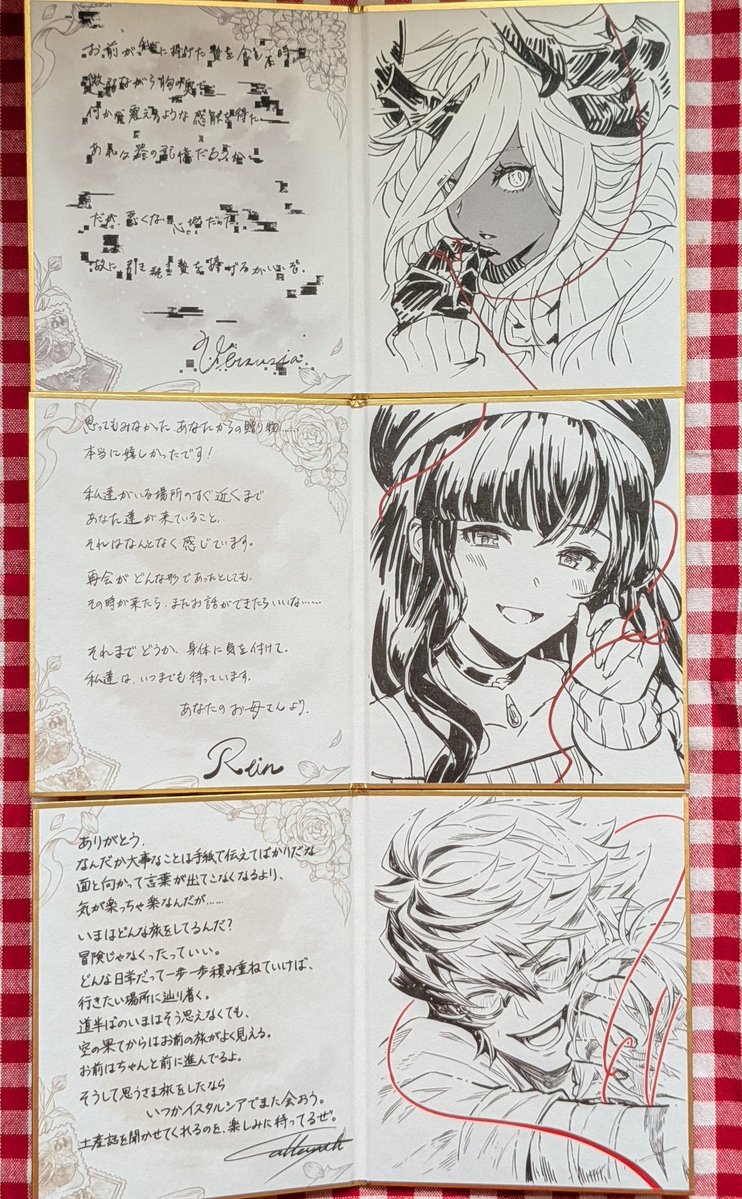 お前が私に捧げた贄を
微弱ながら胸の奥で
何かが震えるような感触を得た
あれは器の記憶だろうか
だが、悪くない心地だった。
故に引き続き贄を捧げるがいいぞ。
Versusia
思ってもみなかった、あなたからの贈り物……
本当に嬉しかったです！
私達がいる場所のすぐ近くまで
あなた達が来ていること、
それはなんとなく感じています。
再会がどんな形であったとしても、
その時が来たら、またお話ができたらいいな……
それまでどうか、身体に気を付けて。
私達は、いつまでも待っています。
あなたのお母さんより。
Rein
ありがとう。
なんだか大事なことは手紙で伝えてばかりだな
面と向かって言葉が出てこなくなるより、
気が楽っちゃ楽なんだが……
いまはどんな旅をしてるんだ？
冒険じゃなくったっていい。
どんな日常だって一歩一歩積み重ねていけば、
行きたい場所に辿り着く。
道半ばのいまはそう思えなくても、
空の果てからはお前の旅がよく見える。
お前はちゃんと前に進んでるよ。
そうして思うさま旅をしたなら
いつかイスタルシアでまた会おう。
土産話を聞かせてくれるのを、楽しみに待ってるぜ。